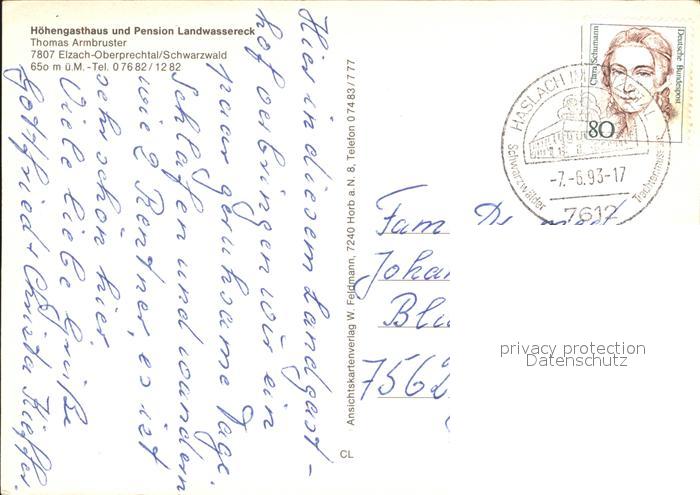 Höhengasthaus und Pension Landwassereck
Thomas Armbruster
7807 Elzach-Oberprechtal/Schwarzwald
650 m ü.M.-Tel. 0 76 82 / 12 82
Hier in diesem Landgast-
hof verbringen wir ein
paar geruhsame Tage.
Schlafen und wandern
wie 2 Rentner, es ist
sehr schön hier.
Viele liebe Grüße
Gottfried + Christa Kieffer.
Ansichtskartenverlag W. Feldmann, 7240 Horb a.N. 8, Telefon 0 74 83 / 7 77
CL
Clara Schumann
Deutsche Bundespost
80
HASLACH IM
-7.-6.93-17
Schwarzwälder Trachtenmuseum
7612
Fam
Joha
Blu
7562
privacy protection
Datenschutz